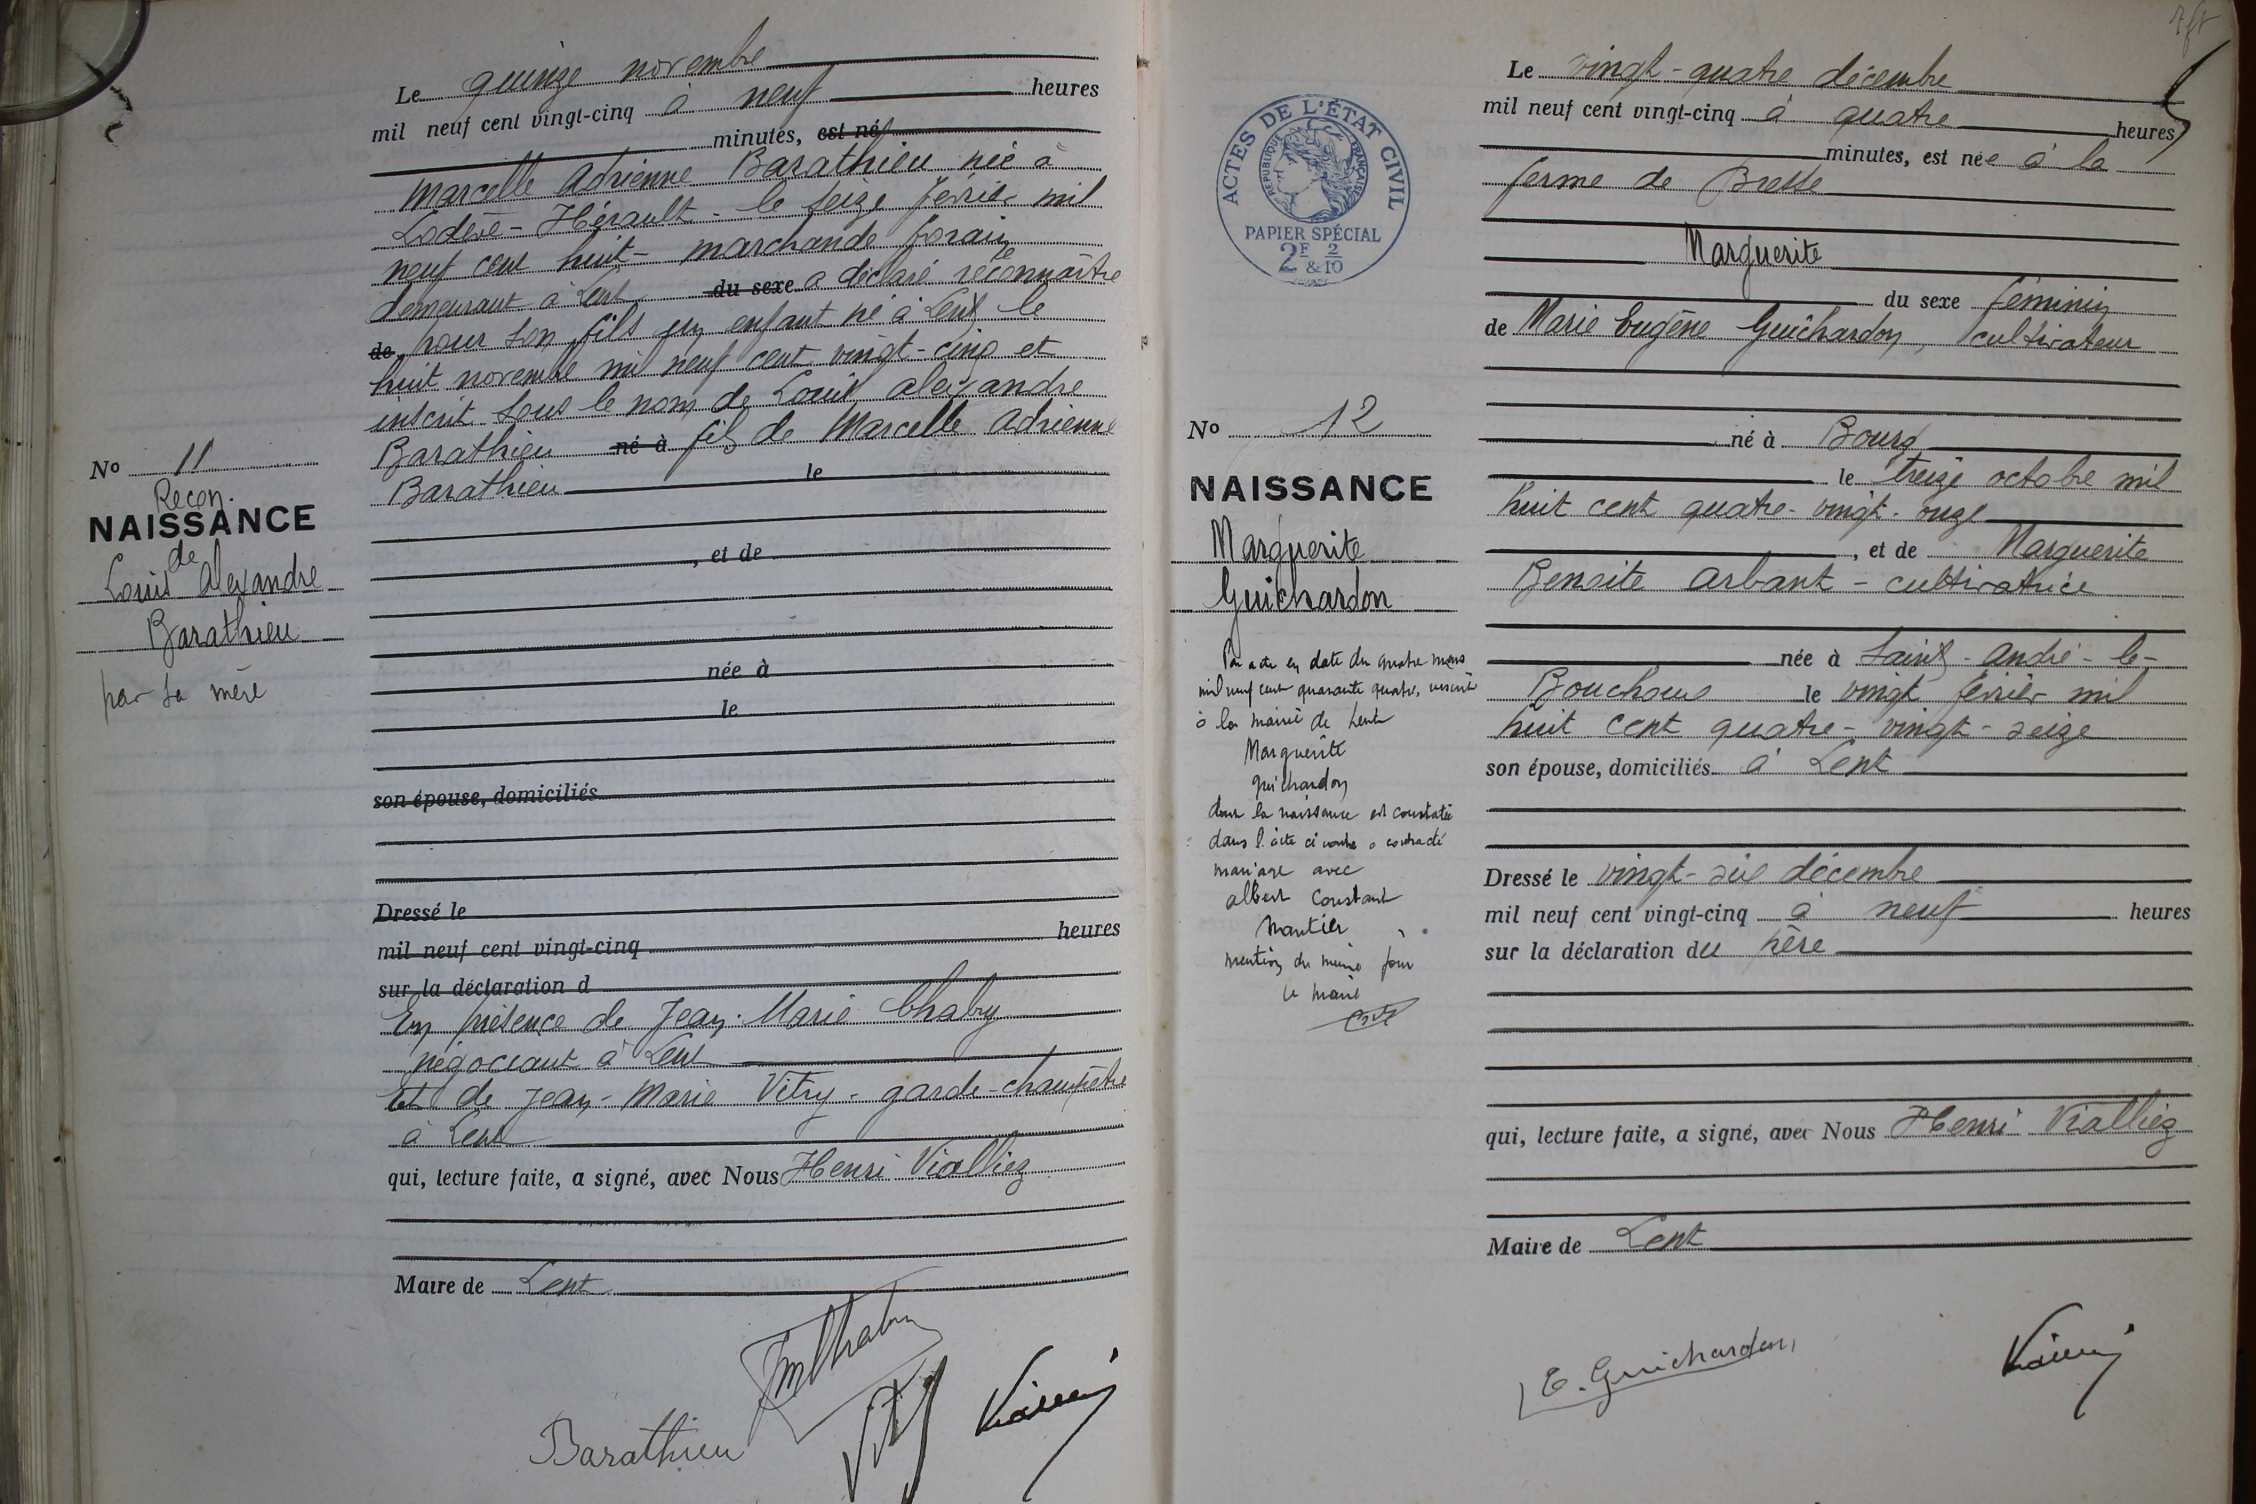 Le quinze novembre
mil neuf cent vingt-cinq à neuf heures
minutes, est né
Marcelle Adrienne Barathieu née à
Lodève - Hérault - le seize février mil
neuf cent huit - marchande foraine
demeurant à Lent du sexe a déclaré reconnaître
de pour son fils un enfant né à Lent le
huit novembre mil neuf cent vingt-cinq et
inscrit sous le nom de Louis Alexandre
Barathieu né à fils de Marcelle Adrienne
Barathieu le
, et de
née à
le
son épouse, domiciliés
Dressé le
mil neuf cent vingt-cinq heures
sur la déclaration d
En présence de Jean-Marie Chabry
négociant à Lent
et de Jean-Marie Vitry - garde-champêtre
à Lent
qui, lecture faite, a signé, avec Nous Henri Vialliez
Maire de Lent
Barathieu
No 11
Recon.
NAISSANCE
de
Louis Alexandre
Barathieu
par sa mère
ACTES DE L'ÉTAT CIVIL
RÉPUBLIQUE FRANÇAISE
PAPIER SPÉCIAL
2F & 2/10
No 12
NAISSANCE
Marguerite
Guichardon
Par acte en date du quatre mars
mil neuf cent quarante quatre, inscrit
à la mairie de Lent
Marguerite
Guichardon
dont la naissance est constatée
dans l'acte ci contre a contracté
mariage avec
Albert Constant
mention du même jour
le maire
Le vingt-quatre décembre
mil neuf cent vingt-cinq à quatre heures
minutes, est née à la
ferme de Bresse
Marguerite
du sexe féminin
de Marie Eugène Guichardon, cultivateur
né à Bourg
le treize octobre mil
huit cent quatre-vingt-onze
, et de Marguerite
Benoite Arbant - cultivatrice
née à Saint-André-le-
Bouchoux le vingt février mil
huit cent quatre-vingt-seize
son épouse, domiciliés à Lent
Dressé le vingt-six décembre
mil neuf cent vingt-cinq à neuf heures
sur la déclaration du père
qui, lecture faite, a signé, avec Nous Henri Vialliez
Maire de Lent
E. Guichardon